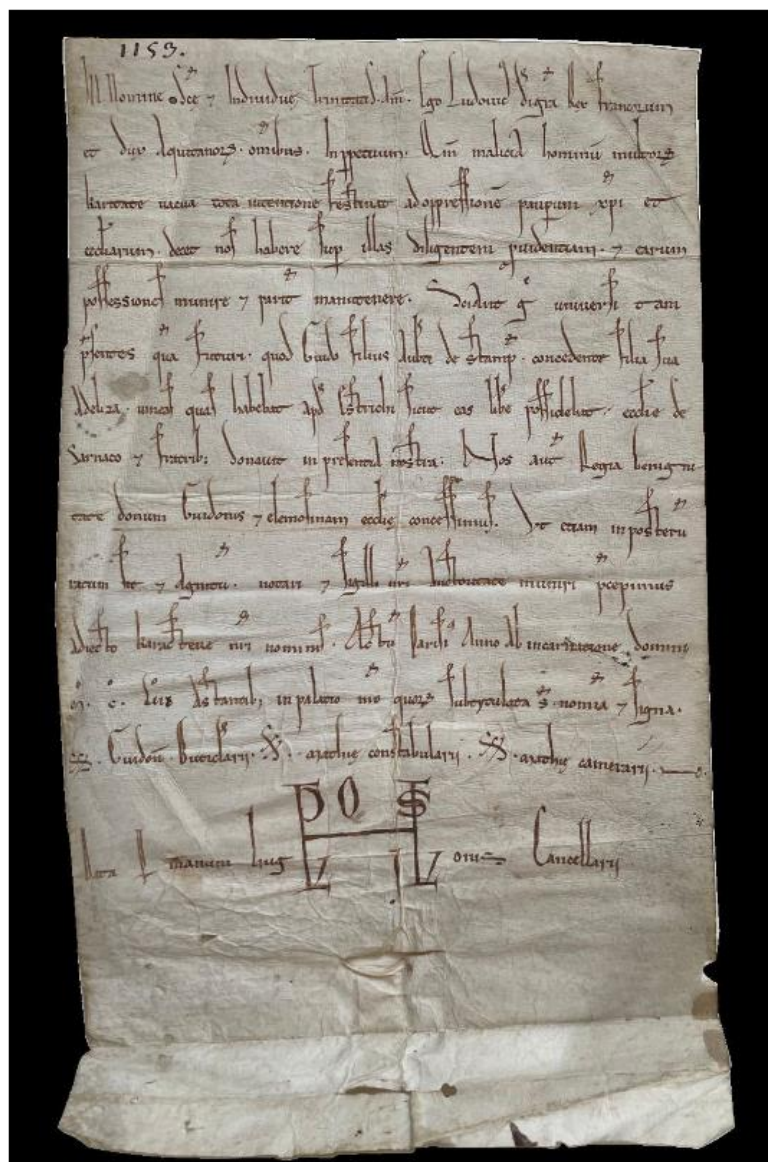 1153.
In Nomine sc̄ę ⁊ Individuę Trinitatis. Am̄. Ego Ludovic' di gr̄a Rex francorum
et dux Aquitanorꝝ. omībus. In ꝑpetuum. Qm̄ malicia hominū multorꝝ
karitate vacua tota intentione festinat ad oppressionē pauꝑum xp̄i et
eccl̄iarum. decet nos habere suꝑ illas diligentem ꝓvidentiam. ⁊ earum
possessiones munire ⁊ manutenere. Sciant g° universi tam
p̄sentes qua futuri. quod Guido filius Alberti de Stamp̄. concedente filia sua
Adeliza. quas habebat apd̄ sicut eas libe possidebat. eccl̄ie de
Sarnaco ⁊ fratrib; donavit in presentia nostra. Nos aut̄ Regia benigni-
tate donum Guidonis ⁊ elemosinam eccl̄ię concessimus. Ut etiam in posterū
ratum sit ⁊ notari ⁊ sigilli nr̄i Auctoritate muniri p̄cepimus
adiecto karactere nr̄i nominis. Actū Parisi' Anno Ab incarnatione domini
m̊. c̊. Liii Astantib; in palatio nr̄o quorꝝ subtitulata s̄. nomīa ⁊ signa.
S. Guidonis. Buticlarii. S. mathię constabularii. S. mathię camerarii.
Data ꝑ manum Hugonis Cancellarii